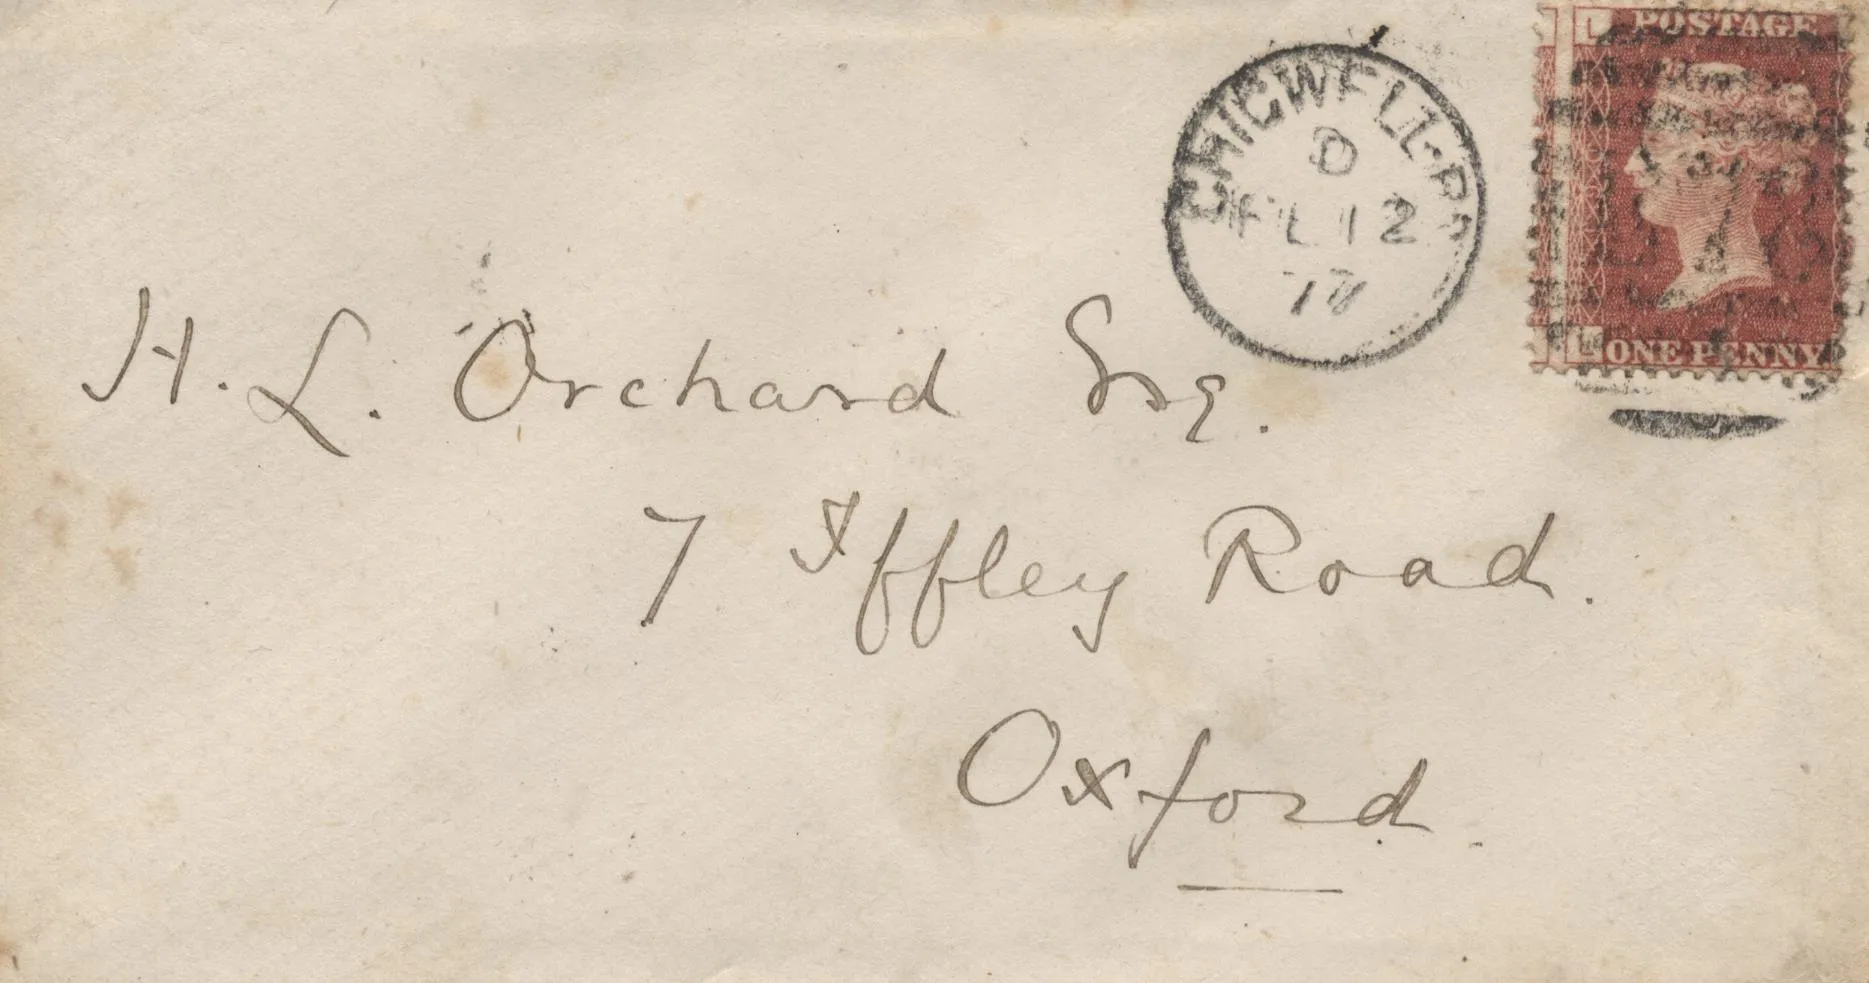 POSTAGE
CHIGWELL-RD
D
12
77
L
ONE PENNY
H. L. Orchard Esq.
7 Iffley Road.
Oxford.